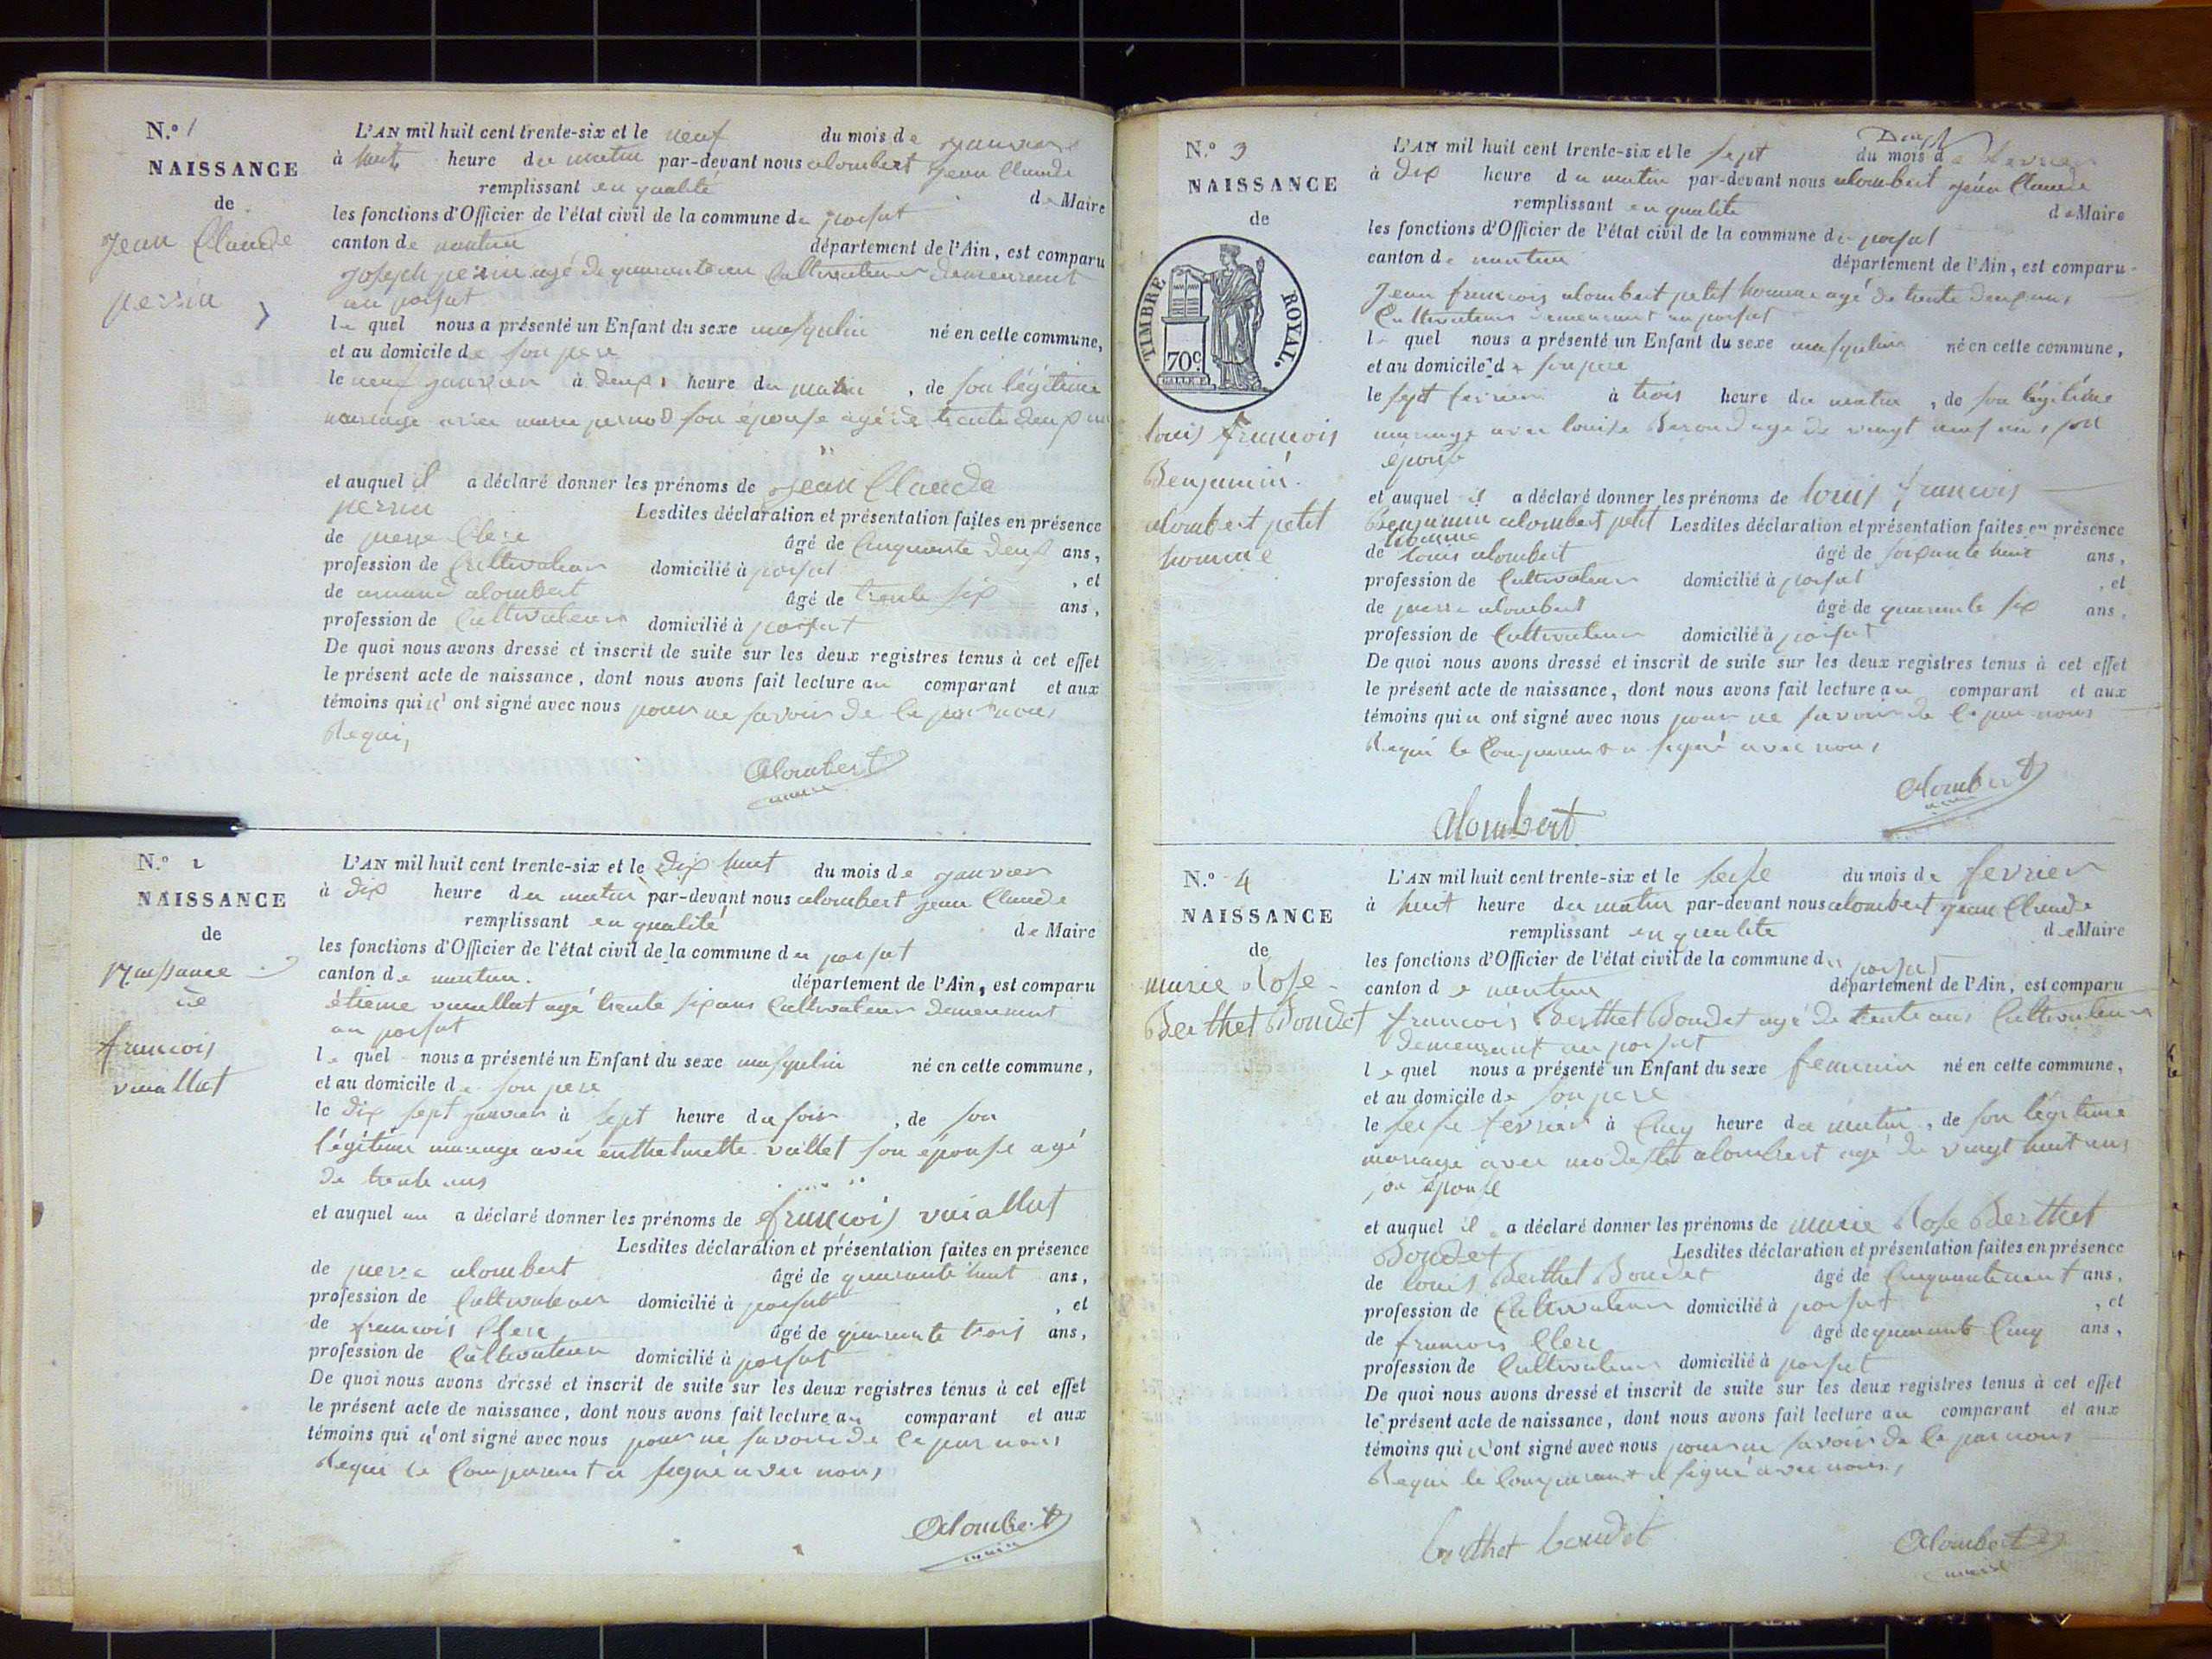 N.° 1
NAISSANCE
de
Jean Claude
perrin
L'AN mil huit cent trente-six et le neuf du mois de janvier
à huit heure du matin par-devant nous alombert jean Claude
remplissant en qualité de Maire
les fonctions d'Officier de l'état civil de la commune du poisat
canton de nantua département de l'Ain, est comparu
joseph perrin agé de quarante un Cultivateur demeurant
au poisat
le quel nous a présenté un Enfant du sexe masqulin né en cette commune,
et au domicile de son pere
le neuf janvier à deux heure du matin, de son légitime
mariage avec marie son épouse agé de trente deux ans
et auquel il a déclaré donner les prénoms de Jean Claude
perrin Lesdites déclaration et présentation faites en présence
de pierre Clerc âgé de Cinquante deux ans,
profession de Cultivateur domicilié à poisat, et
de armand alombert âgé de trente six ans,
profession de Cultivateur domicilié à poisat
De quoi nous avons dressé et inscrit de suite sur les deux registres tenus à cet effet
le présent acte de naissance, dont nous avons fait lecture au comparant et aux
témoins qui n'ont signé avec nous pour ne savoir de ce par nous
Requi,
Alombert
maire
N.° 2
NAISSANCE
de
Naissance
de
francois
vuaillat
L'AN mil huit cent trente-six et le Dix huit du mois de janvier
à dix heure du matin par-devant nous alombert jean Claude
remplissant en qualité de Maire
les fonctions d'Officier de l'état civil de la commune du poisat
canton de nantua. département de l'Ain, est comparu
étiene vuaillat agé trente six ans Cultivateur demeurant
au poisat
le quel nous a présenté un Enfant du sexe masqulin né en cette commune,
et au domicile de son pere
le dix sept janvier à sept heure du soir, de son
légitime mariage avec vallet son épouse agé
de trente ans
et auquel a déclaré donner les prénoms de françois vuaillat
Lesdites déclaration et présentation faites en présence
de pierre alombert âgé de quarante huit ans,
profession de Cultivateur domicilié à poisat, et
de francois Clerc âgé de quarante trois ans,
profession de Cultivateur domicilié à poisat
De quoi nous avons dressé et inscrit de suite sur les deux registres tenus à cet effet
le présent acte de naissance, dont nous avons fait lecture au comparant et aux
témoins qui n'ont signé avec nous pour ne savoir de ce par nous
Requi le Comparant a signé avec nous
Alombert
maire
N.° 3
NAISSANCE
de
TIMBRE ROYAL.
70c
louis francois
Benjamin
alombert petit
homme
L'AN mil huit cent trente-six et le sept du mois de fevrier
à dix heure du matin par-devant nous alombert jean Claude
remplissant en qualité de Maire
les fonctions d'Officier de l'état civil de la commune du poisat
canton de nantua département de l'Ain, est comparu
Jean francois alombert petit homme agé de trente deux ans
Cultivateur demeurant au poisat
le quel nous a présenté un Enfant du sexe masqulin né en cette commune,
et au domicile de son pere
le sept fevrier à trois heure du matin, de son légitime
mariage avec louise Beroud agé de vingt neuf ans, son
épouse
et auquel il a déclaré donner les prénoms de louis francois
Benjamin alombert petit homme Lesdites déclaration et présentation faites en présence
de louis alombert âgé de soixante huit ans,
profession de Cultivateur domicilié à poisat, et
de pierre alombert âgé de quarante six ans,
profession de Cultivateur domicilié à poisat
De quoi nous avons dressé et inscrit de suite sur les deux registres tenus à cet effet
le présent acte de naissance, dont nous avons fait lecture au comparant et aux
témoins qui n ont signé avec nous pour ne savoir de ce par nous
Requi le Comparant a signé avec nous
Alombert
maire
alombert
N.° 4
NAISSANCE
de
marie Rose
Berthet Bondet
L'AN mil huit cent trente-six et le seise du mois de fevrier
à huit heure du matin par-devant nous alombert jean Claude
remplissant en qualité de Maire
les fonctions d'Officier de l'état civil de la commune du poisat
canton de nantua département de l'Ain, est comparu
francois Berthet Bondet agé de trente ans Cultivateur
demeurant au poisat
le quel nous a présenté un Enfant du sexe feminin né en cette commune,
et au domicile de son pere
le seise fevrier à Cinq heure du matin, de son légitime
mariage avec modeste alombert agé de vingt huit ans
son épouse
et auquel il a déclaré donner les prénoms de marie Rose Berthet
Bondet Lesdites déclaration et présentation faites en présence
de louis Berthet Bondet âgé de ans,
profession de Cultivateur domicilié à poisat, et
de francois Clerc âgé de quarante Cinq ans,
profession de Cultivateur domicilié à poisat
De quoi nous avons dressé et inscrit de suite sur les deux registres tenus à cet effet
le présent acte de naissance, dont nous avons fait lecture au comparant et aux
témoins qui n'ont signé avec nous pour ne savoir de ce par nous
Requi le Comparant a signé avec nous,
berthet bondet
Alombert
maire